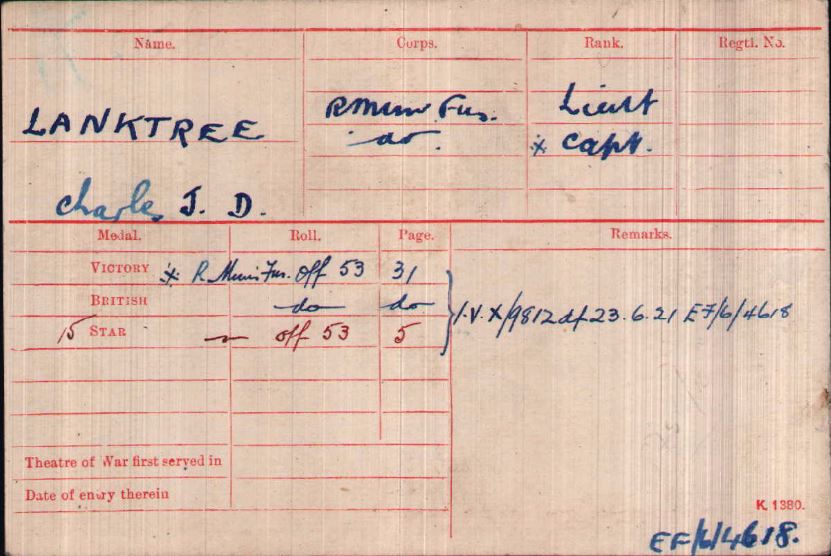 Name. Corps. Rank. Regtl. No.
LANKTREE R Mun Fus. Lieut
do. x Capt.
Charles J. D.
Medal. Roll. Page. Remarks.
VICTORY x R. Mun: Fus. Off 53 31
BRITISH do do
I.V.X/9812 df 23.6.21 EF/6/4618
15 STAR off 53 5
Theatre of War first served in
Date of entry therein
K. 1380.
EF/6/4618.